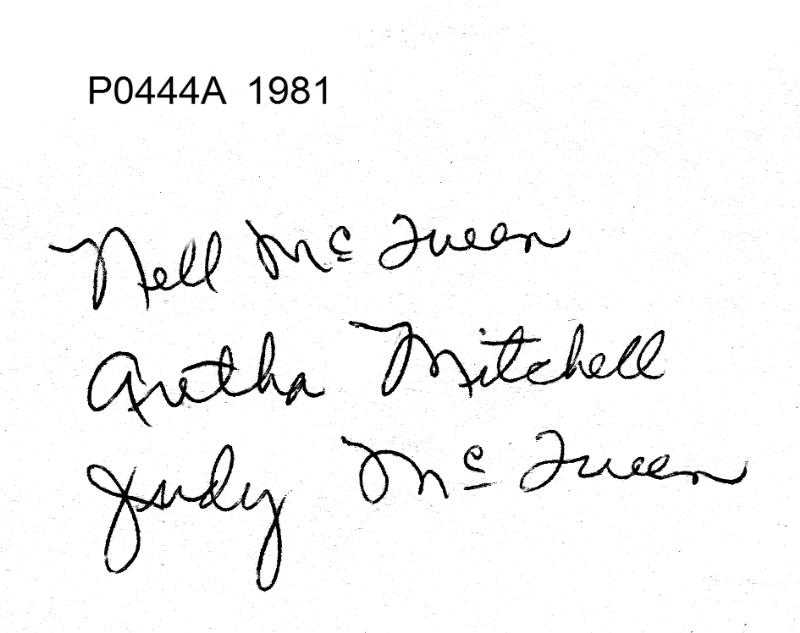 P0444A 1981
Nell McQueen
Aretha Mitchell
Judy McQueen